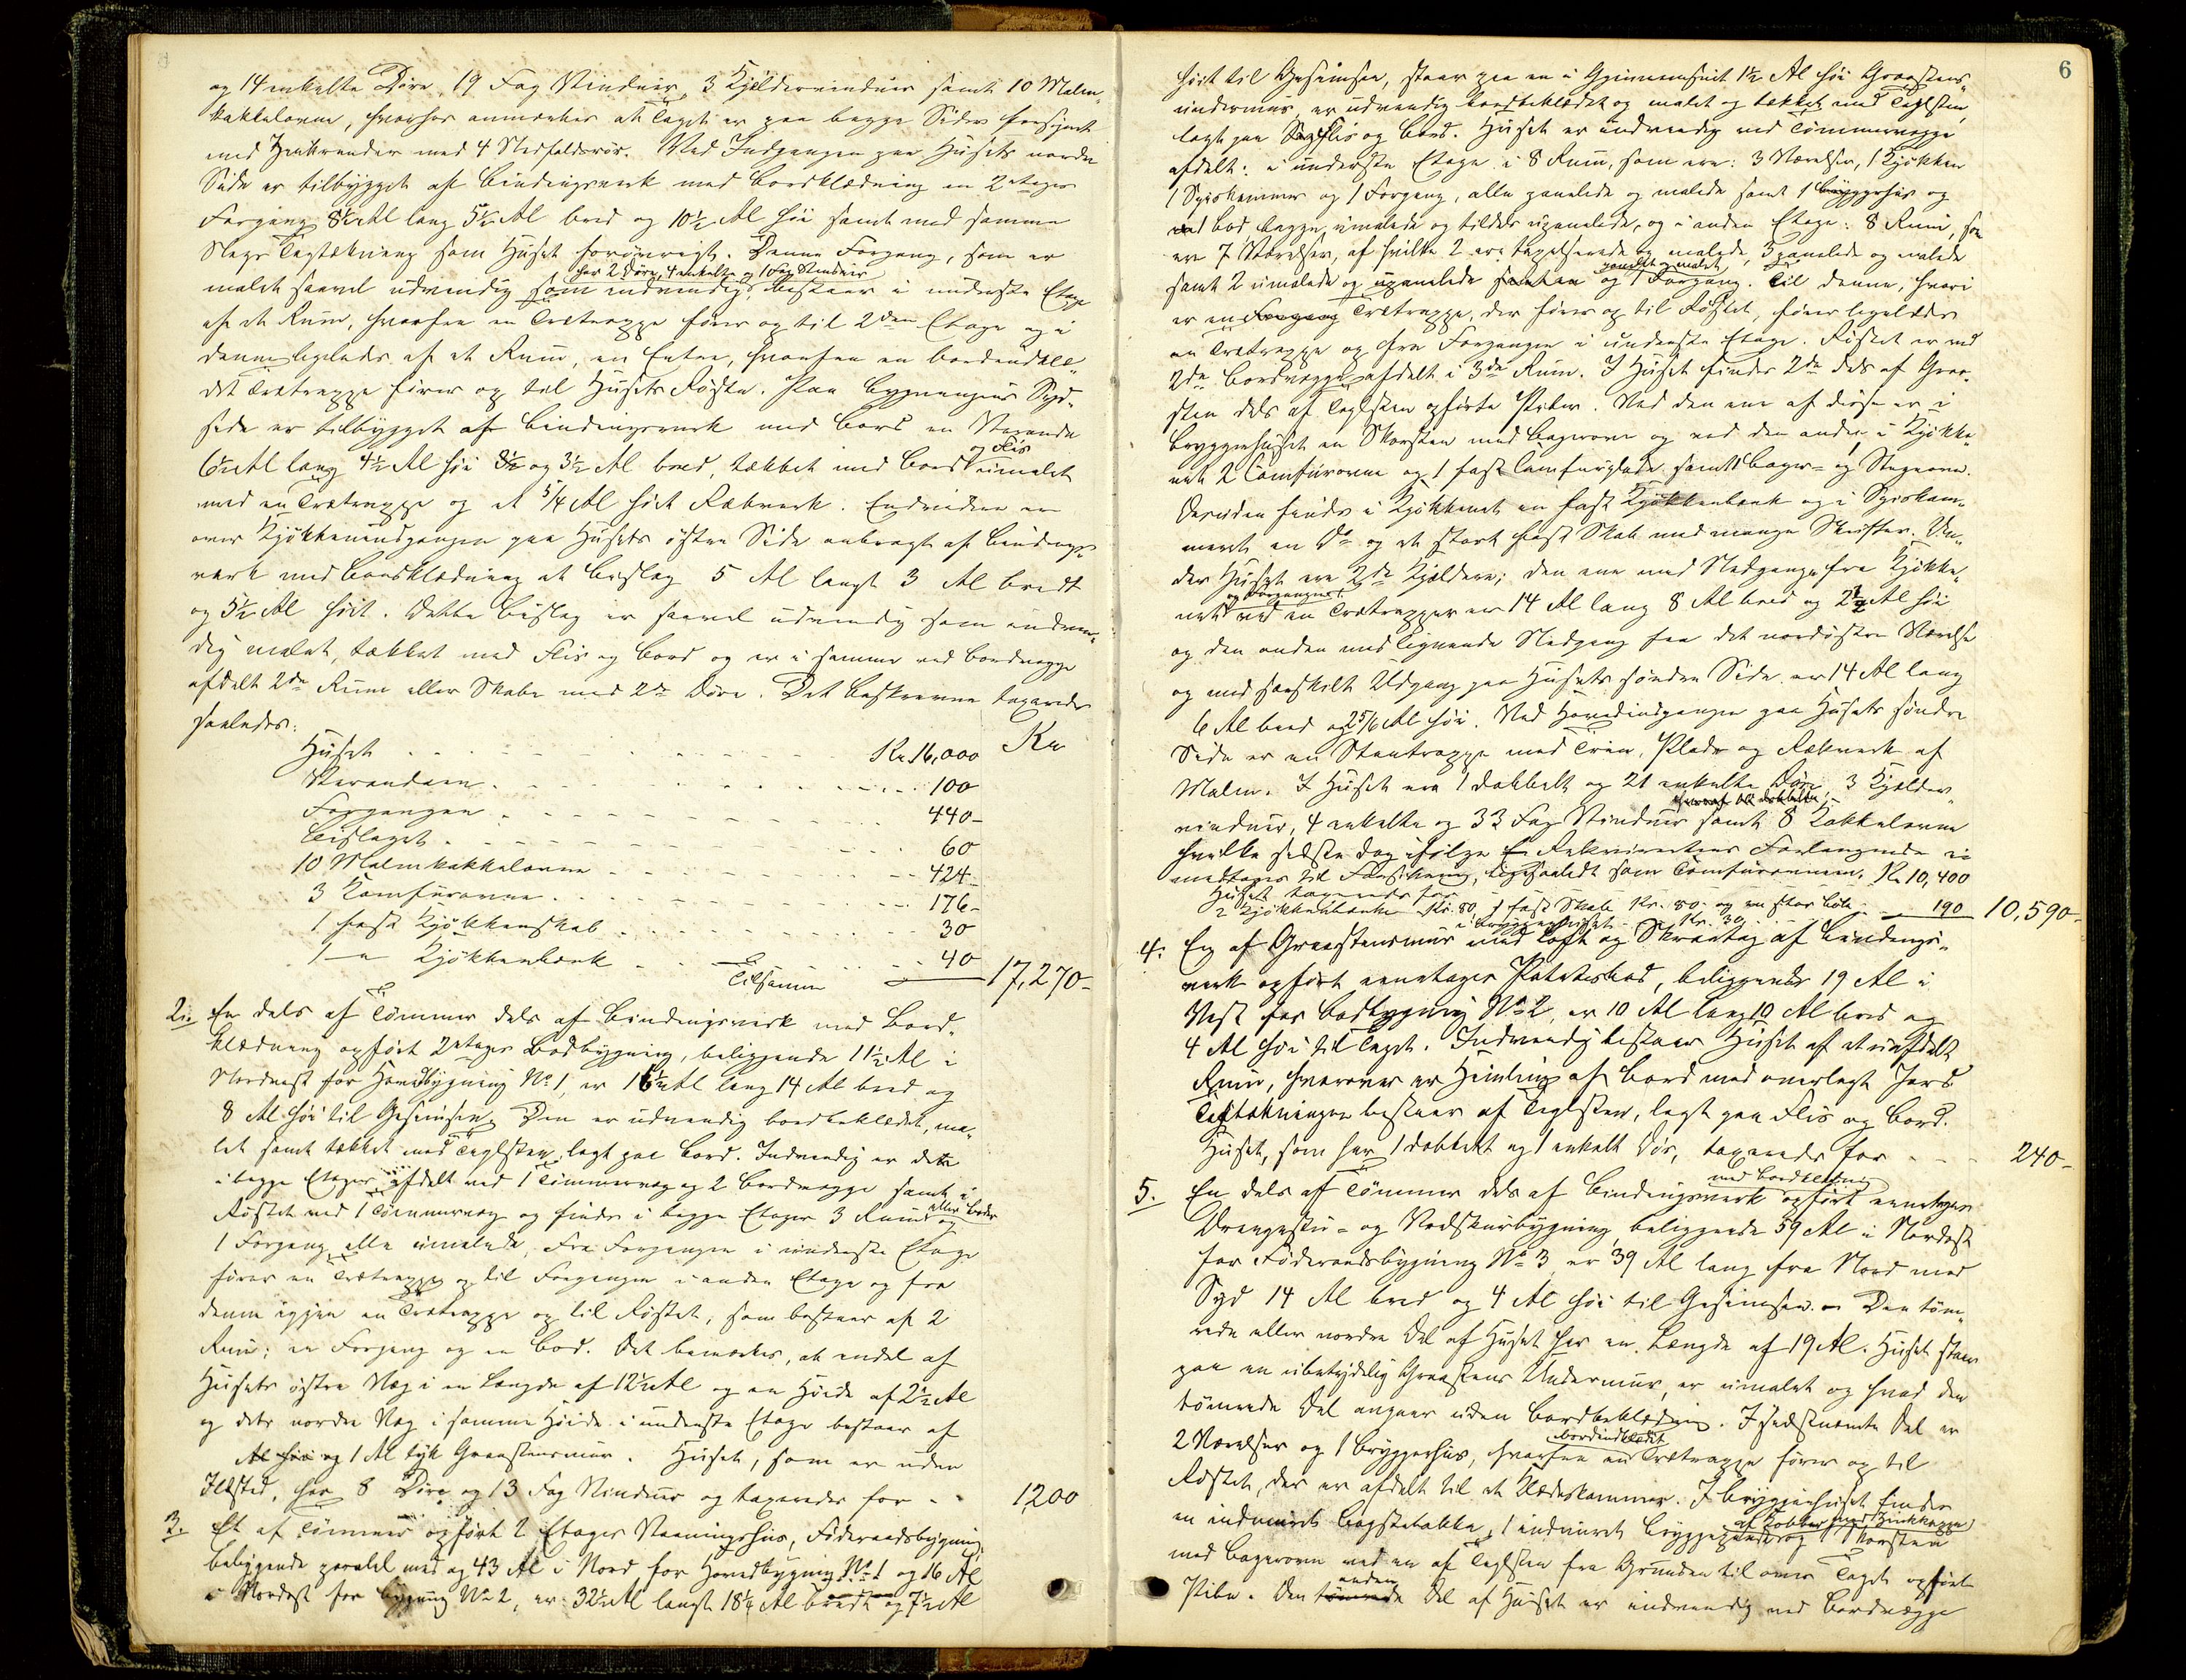 og 14 enkelte Døre, 19 Fag Vinduer, 3 Kjældervinduer samt 10 Malm-
kakkelovne, hvorhos anmærkes at Taget er paa begge Sider forsynet
med Zinkrender med 4 Nedfaldsrør. Ved Indgangen paa Husets nordre
Side er tilbygget af Bindingsverk med Bordklædning en 2 etages
Forgang 8½ Al lang 5½ Al bred og 10½ Al høi samt med samme
Slags Tagtækning som Huset forøvrigt. Denne Forgang, som er
har 2 Døre, 4 enkelte og 1 Fag Vinduer
malet saavel udvendig som indvendig, bestaar i underste Etage
af et Rum, hvorfra en Trætrappe fører op til 2den Etage og i
denne ligeledes af et Rum, en Entre, hvorfra en bordindklæ-
det Trætrappe fører op til Husets Røste. Paa Bygningens Syd-
side er tilbygget af Bindingsverk med Bord en Veranda
og Flis
6½ Al lang 4½ Al høi og 3½ Al bred, tækket med Bord umalet
med en Trætrappe og et 5/4 Al høit Rækverk. Endvidere er
over Kjøkkenindgangen paa Husets østre Side anbragt af Bindings-
verk med Bordklædning et Bislag 5 Al langt 3 Al bredt
og 5½ Al høit. Dette Bislag er saavel udvendig som indven-
dig malet, tækket med Flis og Bord og er i samme ved Bordvægge
afdelt 2de Rum eller Skabe med 2de Døre. Det Beskrevne taxeredes
saaledes:
Huset Kr. 16,000 Kr
Verandaen 100
Forgangen 440-
Bislaget 60
10 Malmkakkelovne 424-
3 Komfurovne 176-
1 fast Kjøkkenskab 30
1 — Kjøkkenbænk 40
Tilsammen 17,270-
2. En dels af Tømmer dels af Bindingsverk med Bord-
klædning opført 2etages Bodbygning, beliggende 11½ Al i
Nordvest for Hovedbygning No 1, er 16½ Al lang 14 Al bred og
8 Al høi til Gesimsen. Den er udvendig bordbeklædet, ma-
let samt tækket med Teglsten, lagt paa Bord. Indvendig er dette
i begge Etager afdelt ved 1 Tømmervæg og 2 Bordvægge samt i
eller Boder
Røstet ved 1 Tømmervæg og findes i begge Etager 3 Rum og
1 Forgang, alle umalede. Fra Forgangen i underste Etage
fører en Trætrappe op til Forgangen i anden Etage og fra
denne igjen en Trætrappe op til Røstet, som bestaar af 2
Rum: en Forgang og en Bod. Det bemærkes, at endel af
Husets østre Væg i en Længde af 12½ Al og en Høide af 2½ Al
og dets nordre Væg i samme Høide i underste Etage bestaar af
Al høi og 1 Al tyk Graastensmur. Huset, som er uden
Ildsted, har 8 Døre og 13 Fag Vinduer og taxeredes for 1,200
3. Et af Tømmer opført 2 Etages Vaaningshus, Føderaadsbygning,
beliggende paralel med og 43 Al i Nord for Hovedbygning No 1 og 16 Al
i Nordost for Bygning No 2, er 32½ Al langt 18¼ Al bredt og 7½ Al
6
høit til Gesimsen, staar paa en i Gjennemsnit 1½ Al høi Graastens-
undermur, er udvendig bordbeklædet og malet og tækket med Teglsten,
lagt paa Flis og Bord. Huset er indvendig ved Tømmervægge
afdelt: i underste Etage i 8 Rum, som ere: 3 Værelser, 1 Kjøkken
1 Spiskammer og 1 Forgang, alle panelede og malede samt 1 Bryggerhus og
ved bod begge, umalede og tildels upanelede, og i anden Etage: 8 Rum, som
er 7 Værelser, af hvilke 2 ere tapetserede og malede, 3 panelede og malede
panelet og malet
samt 2 umalede og upanelede samt en og 1 Forgang. Til denne, hvori
er en Forgang Trætrappe, der fører op til Røstet, fører ligeledes
en Trætrappe op fra Forgangen i underste Etage. Røstet er ved
2de Bordvægge afdelt i 3de Rum. I Huset findes 2de dels af Graa-
sten dels af Teglsten opførte Piber. Ved den ene af disse er i
Bryggerhuset en Skorsten med Bagerovn og ved den anden i Kjøkke-
net 2 Komfurovne og 1 fast Comfurplade samt Bager- og Stegeovn.
Desuden findes i Kjøkkenet en fast Kjøkkenbænk og i Spiskam-
meret en Do og et stort fast Skab med mange Skuffer. Un-
der Huset ere 2de Kjældere; den ene med Nedgange fra Kjøkke-
og Forgangen
net ved en Trætrapper er 14 Al lang 8 Al bred og 2½ Al høi
og den anden med lignende Nedgang fra det nordøstre Værelse
og med særskilt Udgang paa Husets søndre Side er 14 Al lang
6 Al bred og 2 5/6 Al høi. Ved Hovedindgangen paa Husets søndre
Side er en Stentrappe med Trin, Plade og Rækverk af
Malm. I Huset ere 1 dobbelt og 21 enkelte Døre, 3 Kjælder-
vinduer, 4 enkelte og 33 Fag Vinduer samt 8 Kakkelovne
hvilke sidste dog ifølge Rekvirentens Forlangende ei
medtages til Forsikring, ligesaalidt som Comfurovnene. Kr. 10,400
Huset taxeredes for
2 Kjøkkenbænke Kr. 80, 1 fast Skab Kr. 80 og en stor 190 10,590-
i Bryggerhuset Kr. 30
4. En af Graastensmur med Loft og Skraatag af Bindings-
verk opført eenetages Potetesbod, beliggende 19 Al i
Vest for Bodbygning No 2, er 10 Al lang 10 Al bred og
4 Al høi til Taget. Indvendig bestaar Huset af et uafdelt
Rum, hvorover er Himling af Bord med overlagt Jord
Tagtækningen bestaar af Teglsten, lagt paa Flis og Bord.
Huset, som har 1 dobbelt og 1 enkelt Dør, taxeredes for 240-
med Bordklædning
5. En dels af Tømmer dels af Bindingsverk opført eenetages
Drengestu- og Vedskurbygning, beliggende 59 Al i Nordost
for Føderaadsbygning No 3, er 39 Al lang fra Nord mod
Syd 14 Al bred og 4 Al høi til Gesimsen. Den tøm-
rede eller nordre Del af Huset har en Længde af 19 Al. Huset staar
paa en ubetydelig Graastens Undermur, er umalet og hvad den
tømrede Del angaar uden Bordbeklædning. I sidstnævnte Del er
bordindklædt
2 Værelser og 1 Bryggerhus, hvorfra en Trætrappe fører op til
Røstet, der er afdelt til et Klædeskammer. I Bryggerhuset findes
af Kobber med Zinkkappe
en indmuret Bagstetakke, 1 indmuret Bryggepande og 1 Skorsten
med Bagerovn ved en af Teglsten fra Grunden til over Taget opført
anden
Pibe. Den tømrede Del af Huset er indvendig ved Bordvægge